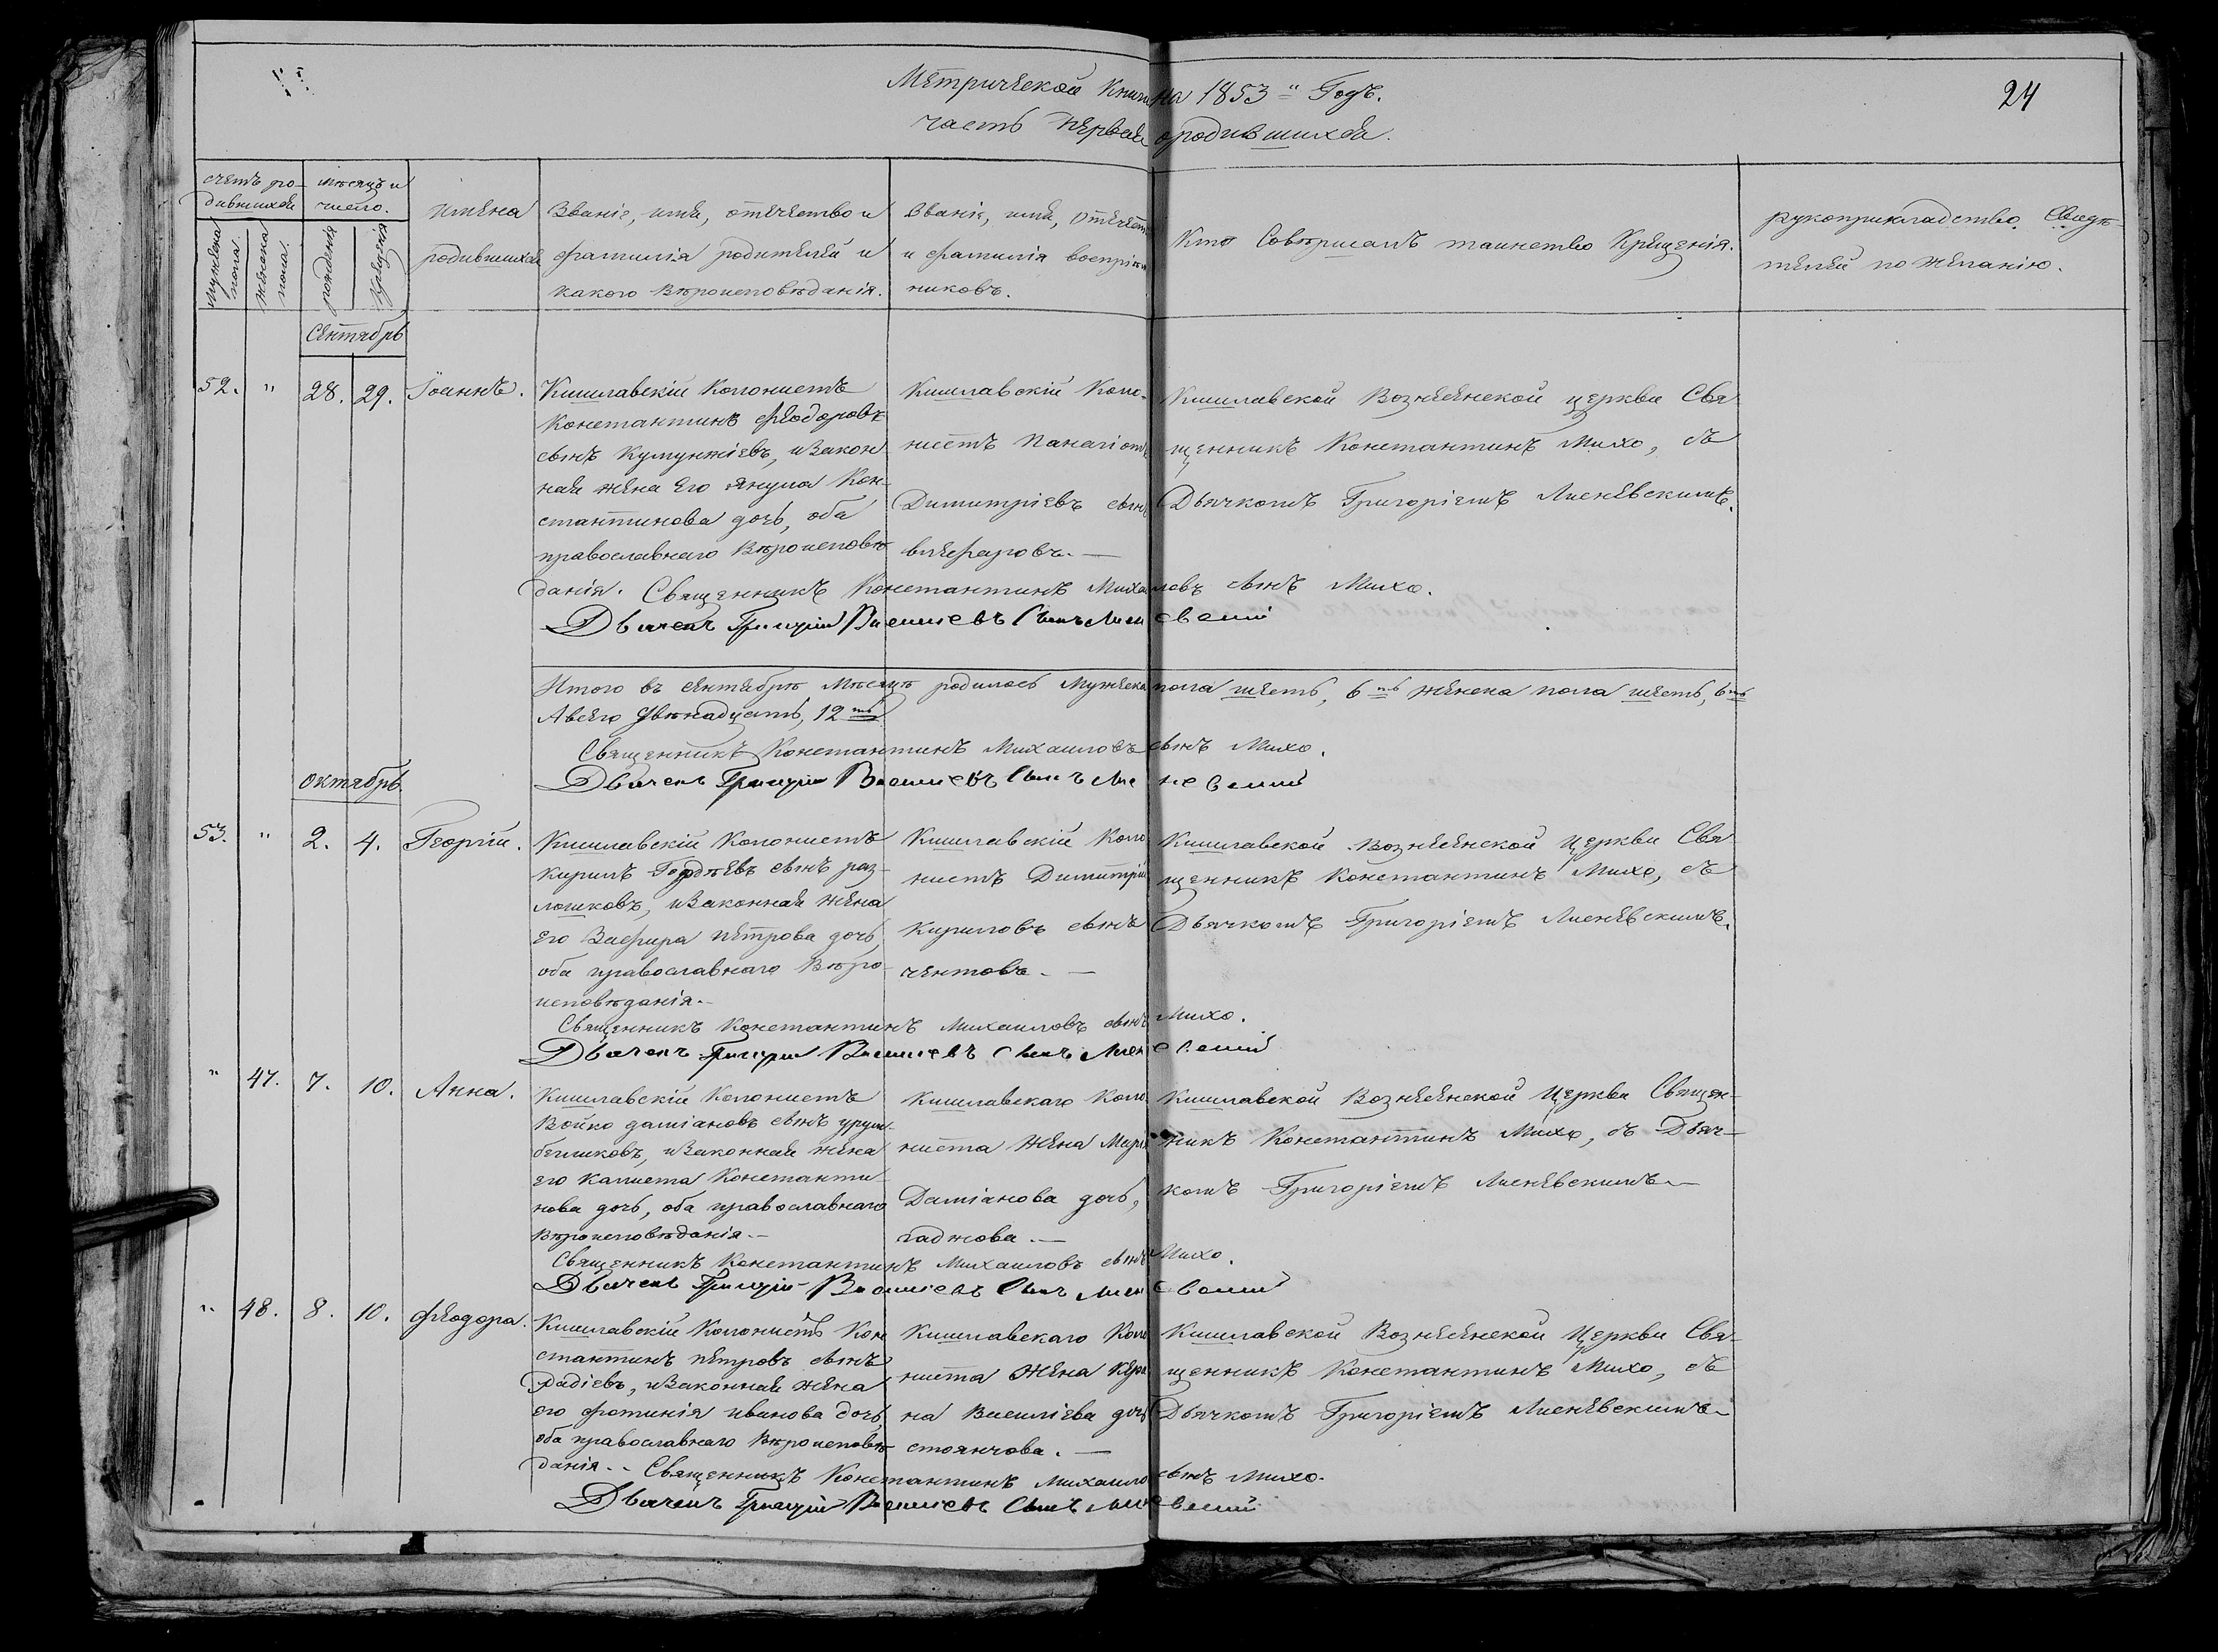 Метрической Книги на 1853 " Годъ.
24
часть первая о родившихся.
счетъ ро-
дившихся
мужеска
пола.
женска
пола.
месяцъ и
число.
рожденія
крещенія
имена
родившихся
Званіе, имя, отечество и
фамилія родителей и
какого вѣроисповѣданія.
Званіе, имя, отечест
и фамилія воспріем
никовъ.
Кто Совершалъ таинство Крещенія.
рукоприкладство Свидѣ-
телей по желанію.
Сентябрь
52. " 28. 29. Іоаннъ.
Кишлавскій Колонистъ
Константинъ Феодоровъ
сынъ Кумунжіевъ, и закон
ная жена его Янула Кон-
стантинова дочь, оба
православнаго вѣроисповѣ
данія. Священникъ Константинъ Михаиловъ сынъ Михо.
Кишлавскій Коло-
нистъ Панагіотъ
Димитріевъ сынъ
Кишлавской Вознесенской церкви Свя
щенникъ Константинъ Михо, съ
Дьячкомъ Григоріемъ Лисневскимъ.
Дьячекъ Григорій Василіевъ Сынъ Лисневскій
Итого въ сентябрѣ Мѣсяцѣ родилось Мужеска пола шесть, 6ть женска пола шесть, 6ть
А всего двѣнадцать, 12ть
Священникъ Константинъ Михаиловъ сынъ Михо.
Дьячекъ Григорій Василіевъ Сынъ Лисневскій
октябрь.
53. " 2. 4. Георгій.
Кишлавскій Колонистъ
Кирилъ Гордѣевъ сынъ раз-
лошковъ, и законная жена
его Замфира петрова дочь,
оба православнаго вѣро-
исповѣданія.-
Кишлавскій Коло
нистъ Димитрій
Кириловъ сынъ
ченковъ. —
Кишлавской Вознесенской Церкви Свя-
щенникъ Константинъ Михо, съ
Дьячкомъ Григоріемъ Лисневскимъ.
Священникъ Константинъ Михаиловъ сынъ Михо.
Дьячекъ Григорій Василіевъ Сынъ Лисневскій
" 47. 7. 10. Анна.
Кишлавскій Колонистъ
Войко даміановъ сынъ урум-
беликовъ, и законная жена
его Калиста Константи
нова дочь, оба православнаго
вѣроисповѣданія.—
Кишлавскаго Коло
ниста Жена Марія
Даміанова дочь,
гаджова.—
Кишлавской Вознесенской Церкви Священ-
никъ Константинъ Михо, съ Дьяч-
комъ Григоріемъ Лисневскимъ—
Священникъ Константинъ Михаиловъ сынъ Михо.
Дьячекъ Григорій Василіевъ Сынъ Лисневскій
" 48. 8. 10. Феодора.
Кишлавскій Колонистъ Кон
стантинъ петровъ сынъ
радіевъ, и законная жена
его фотинія иванова дочь,
оба православнаго вѣроисповѣ
данія.- Священникъ Константинъ Михаило сынъ Михо.
Кишлавскаго Коло
ниста Жена Кера
на Василіева дочь
стоянчова. —
Кишлавской Вознесенской Церкви Свя-
щенникъ Константинъ Михо, съ
Дьячкомъ Григоріемъ Лисневскимъ—
Дьячекъ Григорій Василіевъ Сынъ Лисневскій